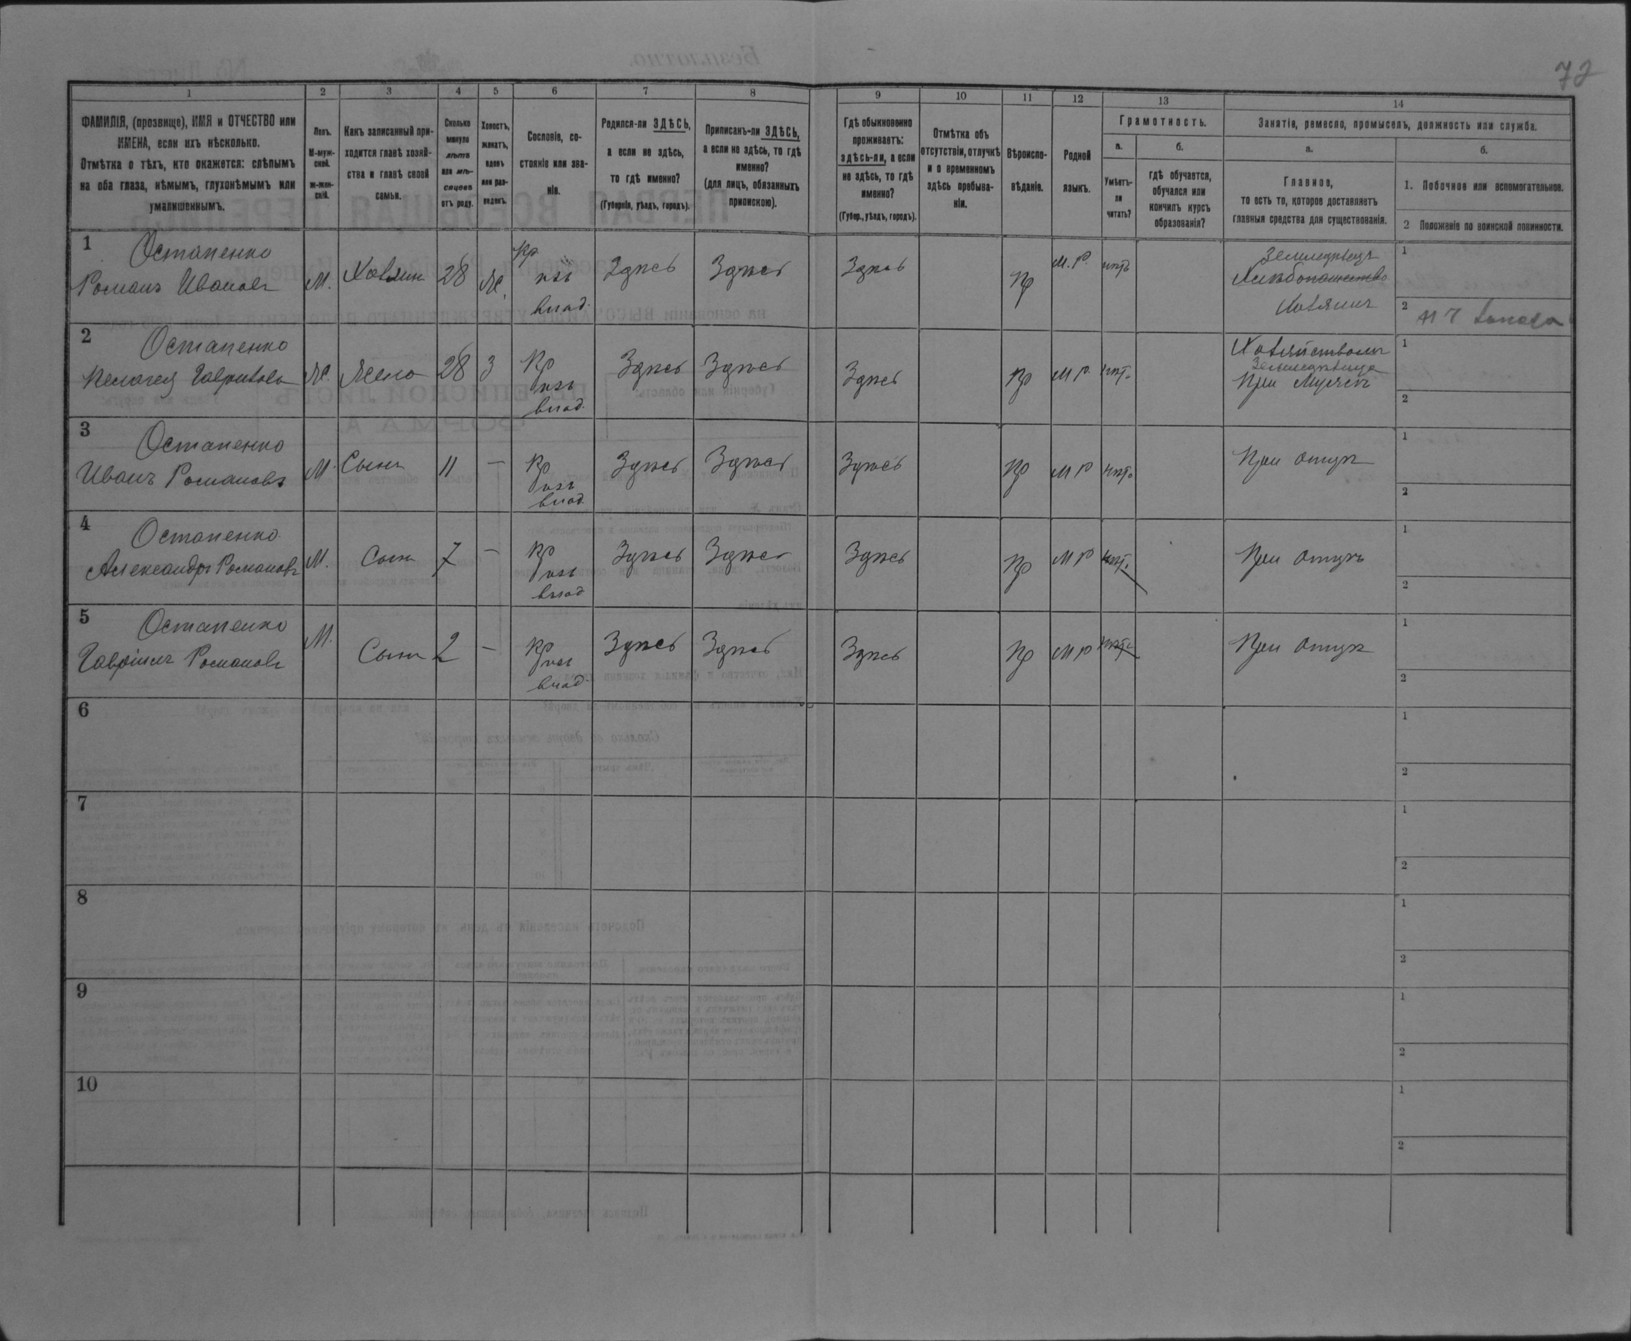 72
1 2 3 4 5 6 7 8 9 10 11 12 13 14
ФАМИЛІЯ, (прозвище), ИМЯ и ОТЧЕСТВО или
ИМЕНА, если ихъ нѣсколько.
Отмѣтка о тѣхъ, кто окажется: слѣпымъ
на оба глаза, нѣмымъ, глухонѣмымъ или
умалишеннымъ.
Полъ.
М-муж-
ской.
ж-жен-
скій.
Какъ записанный при-
ходится главѣ хозяй-
ства и главѣ своей
семьи.
Сколько
минуло
лѣтъ
или мѣ-
сяцевъ
отъ роду.
Холостъ,
женатъ,
вдовъ
или раз-
веденъ.
Сословіе, со-
стояніе или зва-
ніе.
Родился-ли ЗДѢСЬ,
а если не здѣсь,
то гдѣ именно?
(Губернія, уѣздъ, городъ).
Приписанъ-ли ЗДѢСЬ,
а если не здѣсь, то гдѣ
именно?
(для лицъ, обязанныхъ
припискою).
Гдѣ обыкновенно
проживаетъ:
здѣсь-ли, а если
не здѣсь, то гдѣ
именно?
(Губер., уѣздъ, городъ).
Отмѣтка объ
отсутствіи, отлучкѣ
и о временномъ
здѣсь пребыва-
ніи.
Вѣроиспо-
вѣданіе.
Родной
языкъ.
Грамотность.
а.
Умѣетъ-
ли
читать?
б.
гдѣ обучается,
обучался или
кончилъ курсъ
образованія?
Занятіе, ремесло, промыселъ, должность или служба.
а.
Главное,
то есть то, которое доставляетъ
главныя средства для существованія.
б.
1. Побочное или вспомогательное.
2 Положеніе по воинской повинности.
1 Остапенко
Романъ Ивановъ М. Хозяин 28 Ж. Кр
изъ
влад. Здѣсь Здѣсь Здѣсь Пр М.Р. нѣтъ Земледѣлецъ
Хлѣбопашество
Хозяинъ
1
2
2 Остапенко
Пелагея Гаврилова Ж. Жена 28 З Кр
изъ
влад. Здѣсь Здѣсь Здѣсь Пр М Р нѣт.
При Мужѣ
1
2
3 Остапенко
Иванъ Романовъ М. Сынъ 11 — Кр
изъ
влад Здѣсь Здѣсь Здѣсь Пр М Р нѣт. При отцѣ
1
2
4 Остапенко
Александръ Романовъ М. Сынъ 7 — Кр
изъ
влад Здѣсь Здѣсь Здѣсь Пр М Р нѣт. При отцѣ
1
2
5 Остапенко
Гавріилъ Романовъ М. Сынъ 2 — Кр
изъ
влад. Здѣсь Здѣсь Здѣсь Пр М Р нѣт. При отцѣ
1
2
6
1
2
7
1
2
8
1
2
9
1
2
10
1
2